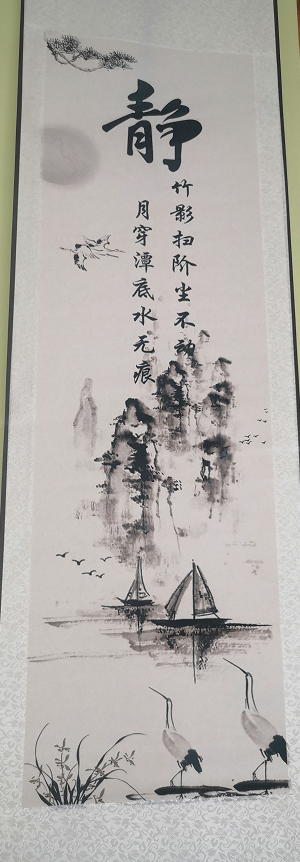 静
竹影扫阶尘不动
月穿潭底水无痕